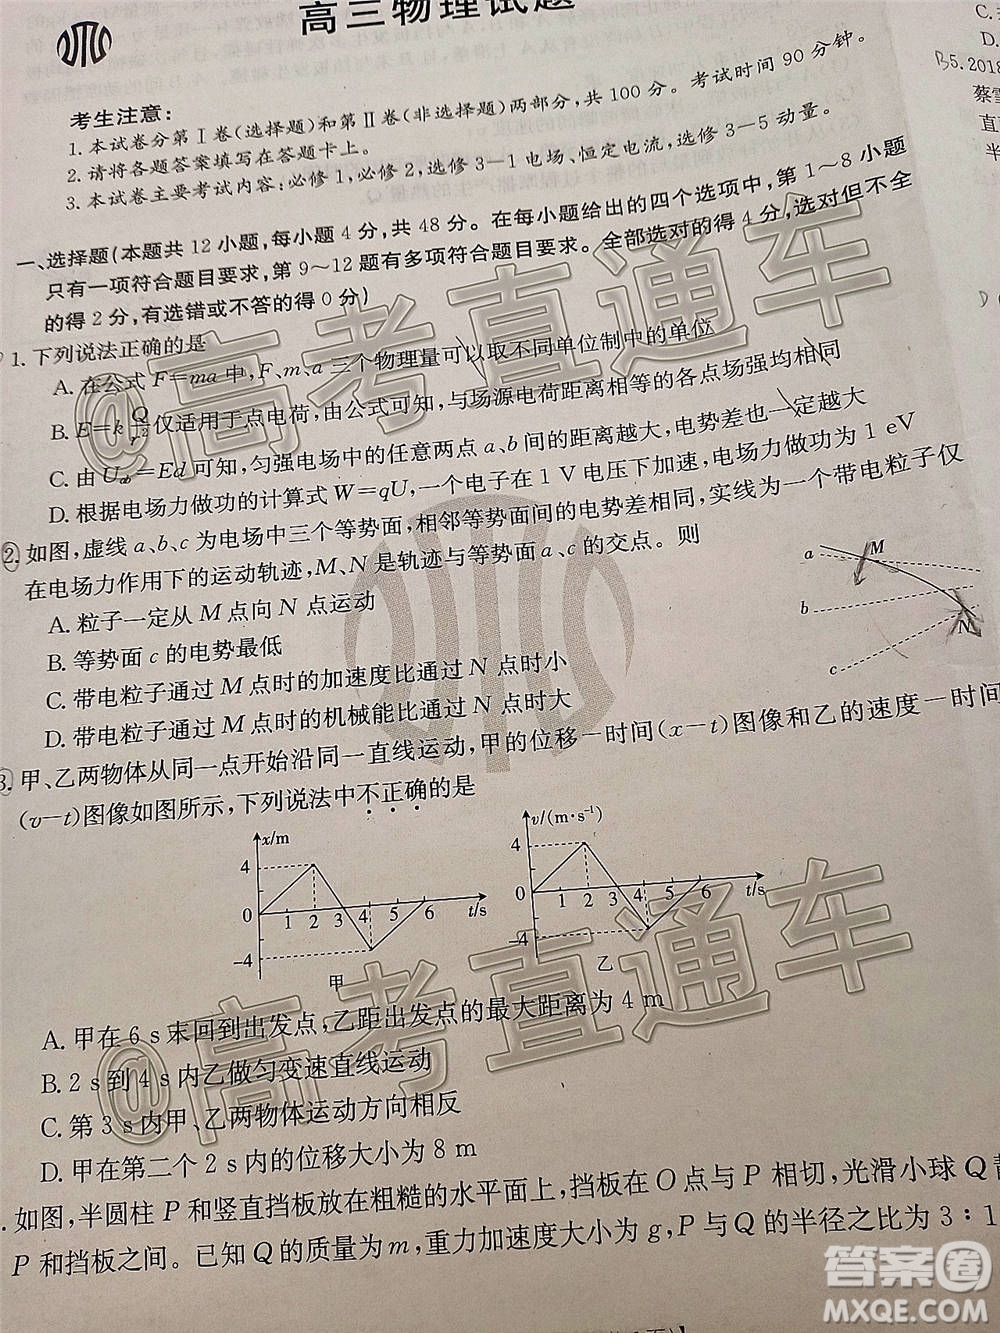 高三物理试题
考生注意:
1. 本试卷分第Ⅰ卷(选择题)和第Ⅱ卷(非选择题)两部分,共 100 分。考试时间 90 分钟。
2. 请将各题答案填写在答题卡上。
3. 本试卷主要考试内容:必修 1,必修 2,选修 3-1 电场、恒定电流,选修 3-5 动量。
一、选择题(本题共 12 小题,每小题 4 分,共 48 分。在每小题给出的四个选项中,第 1~8 小题
只有一项符合题目要求,第 9~12 题有多项符合题目要求。全部选对的得 4 分,选对但不全
的得 2 分,有选错或不答的得 0 分)
1. 下列说法正确的是
A. 在公式 F=ma 中,F、m、a 三个物理量可以取不同单位制中的单位
B. E=k Q/r² 仅适用于点电荷,由公式可知,与场源电荷距离相等的各点场强均相同
C. 由 Uab=Ed 可知,匀强电场中的任意两点 a、b 间的距离越大,电势差也一定越大
D. 根据电场力做功的计算式 W=qU,一个电子在 1 V 电压下加速,电场力做功为 1 eV
2. 如图,虚线 a、b、c 为电场中三个等势面,相邻等势面间的电势差相同,实线为一个带电粒子仅
在电场力作用下的运动轨迹,M、N 是轨迹与等势面 a、c 的交点。则
A. 粒子一定从 M 点向 N 点运动
B. 等势面 c 的电势最低
C. 带电粒子通过 M 点时的动能比通过 N 点时小
D. 带电粒子通过 M 点时的机械能比通过 N 点时大
a
M
b
N
c
3. 甲、乙两物体从同一点开始沿同一直线运动,甲的位移—时间(x-t)图像和乙的速度—时间
(v-t)图像如图所示,下列说法中不正确的是
x/m
4
0
1 2 3 4 5 6 t/s
-4
甲
v/(m·s⁻¹)
4
0
1 2 3 4 5 6 t/s
-4
乙
A. 甲在 6 s 末回到出发点,乙距出发点的最大距离为 4 m
B. 2 s 到 4 s 内乙做匀变速直线运动
C. 第 3 s 内甲、乙两物体运动方向相反
D. 甲在第二个 2 s 内的位移大小为 8 m
. 如图,半圆柱 P 和竖直挡板放在粗糙的水平面上,挡板在 O 点与 P 相切,光滑小球 Q
P 和挡板之间。已知 Q 的质量为 m,重力加速度大小为 g,P 与 Q 的半径之比为 3∶1
C.
D.
5. 2018
蔡
直
半
@高考直通车
@高考直通车
答案圈
MXQE.COM